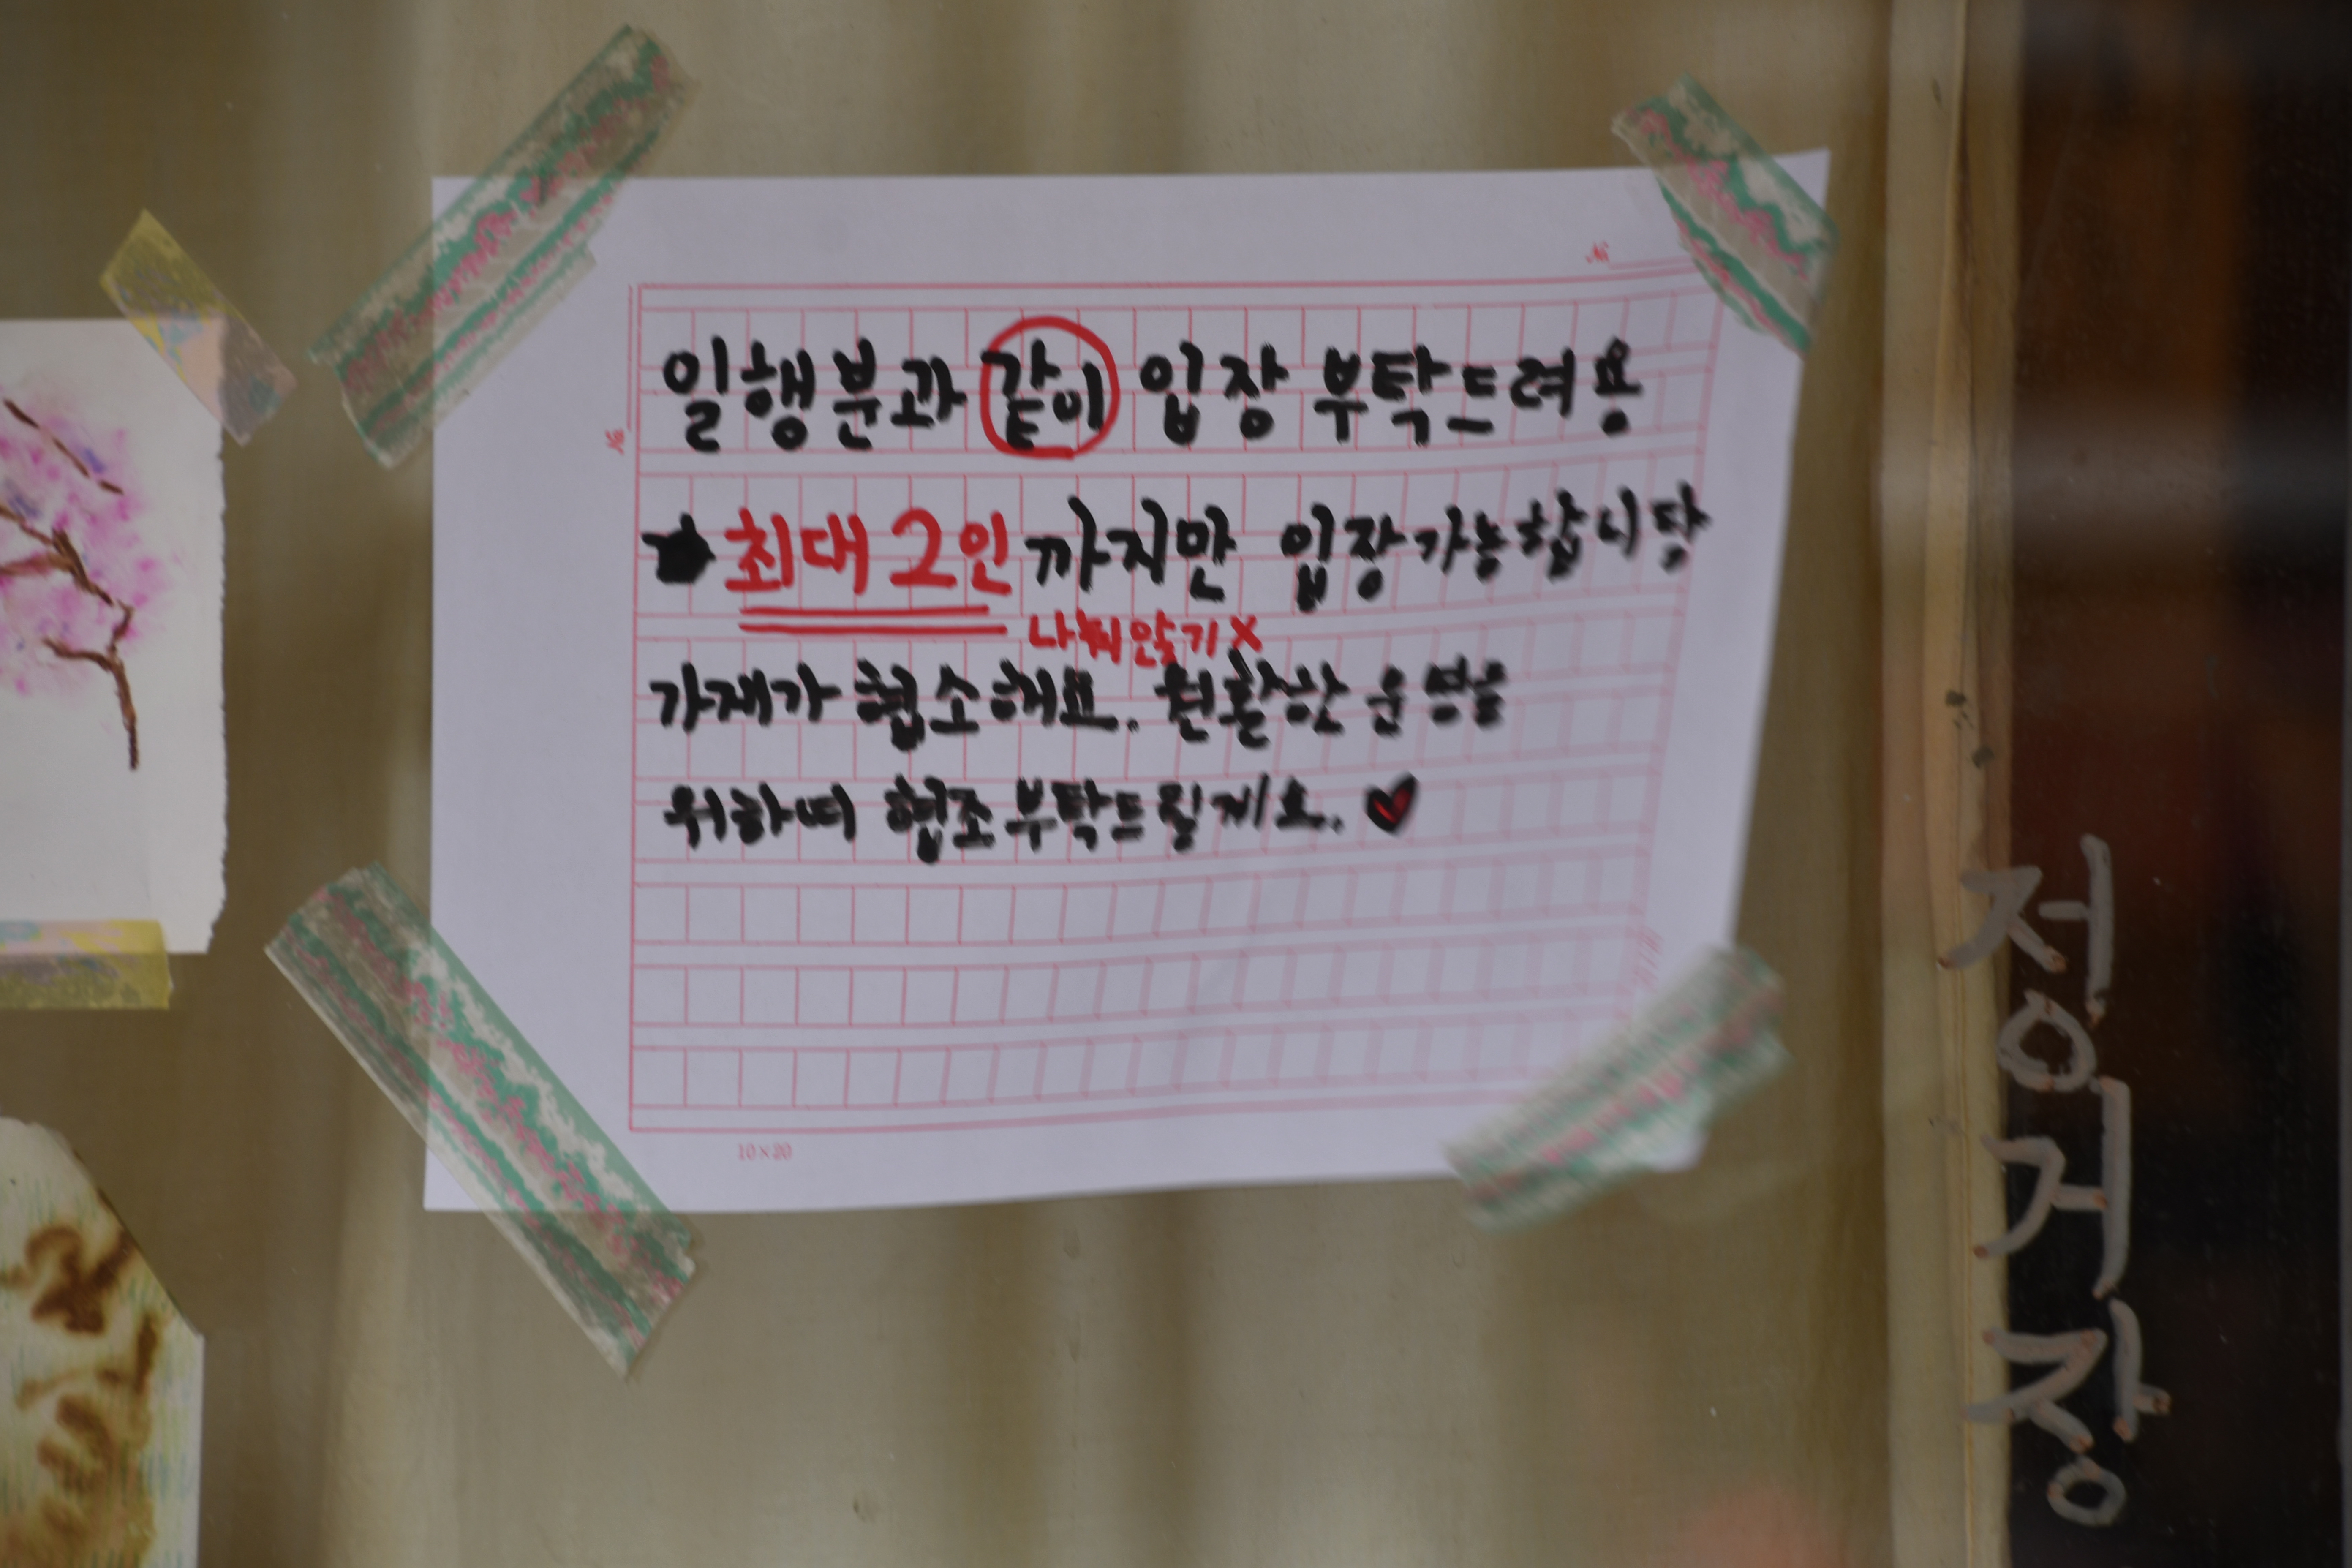 일행분과 같이 입장 부탁드려용
★ 최대 2인 까지만 입장 가능합니당
나눠앉기 X
가게가 협소해요. 원활한 운영을
위하여 협조 부탁드릴게요. ♥
10×20
정거장